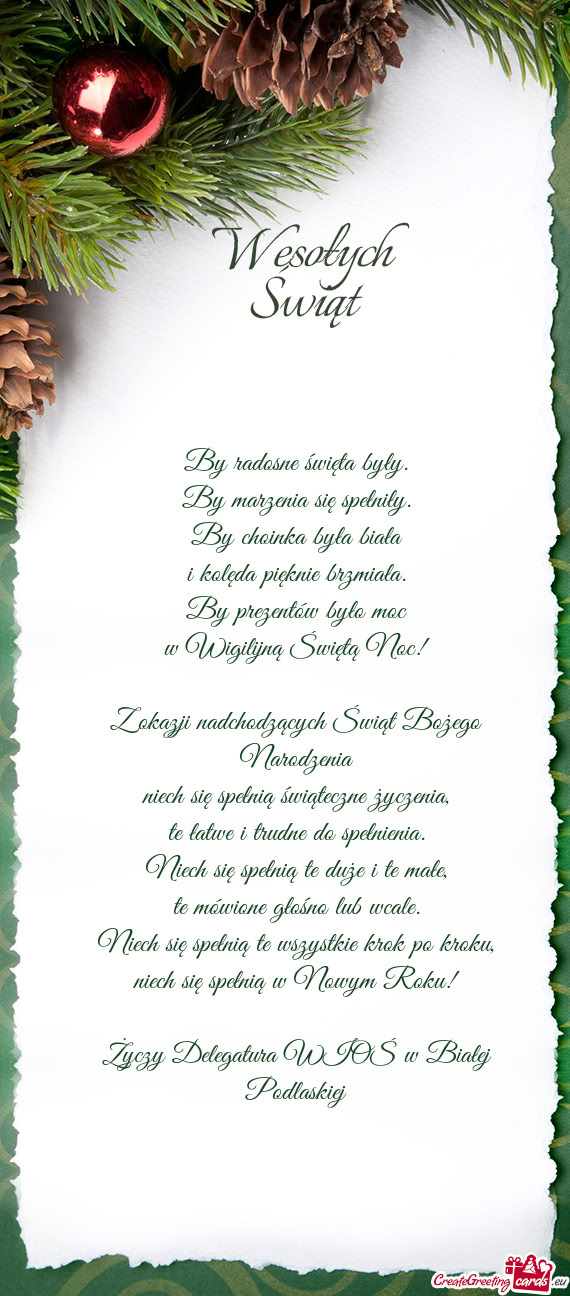 Wesołych
Świąt
By radosne święta były.
By marzenia się spełniły.
By choinka była biała
i kolęda pięknie brzmiała.
By prezentów było moc
w Wigilijną Świętą Noc!
Z okazji nadchodzących Świąt Bożego
Narodzenia
niech się spełnią świąteczne życzenia,
te łatwe i trudne do spełnienia.
Niech się spełnią te duże i te małe,
te mówione głośno lub wcale.
Niech się spełnią te wszystkie krok po kroku,
niech się spełnią w Nowym Roku!
Życzy Delegatura WIOŚ w Białej
Podlaskiej
CreateGreetingcards.eu